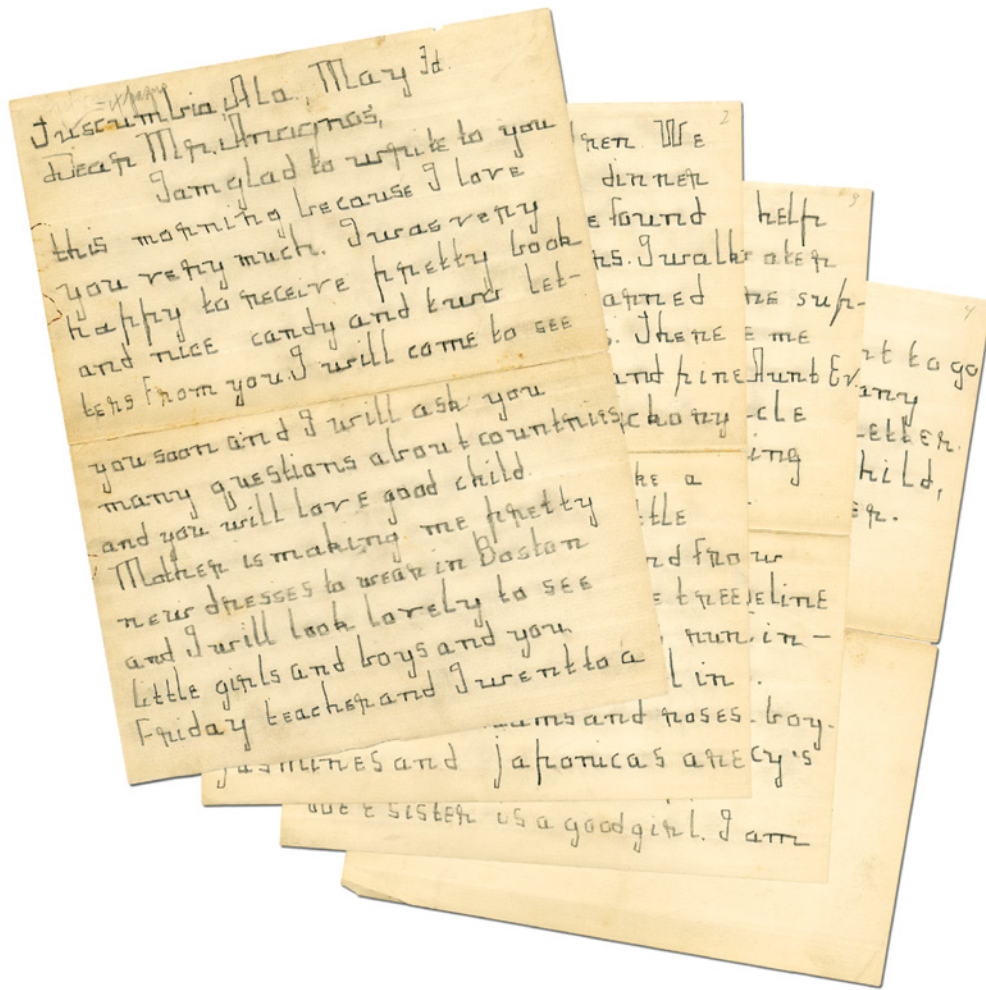 Tuscumbia, Ala., May 3d.
Dear Mr. Anagnos,
I am glad to write to you
this morning because I love
you very much. I was very
happy to receive pretty book
and nice candy and two let-
ters from you. I will come to see
you soon and I will ask you
many questions about countries
and you will love good child.
Mother is making me pretty
new dresses to wear in Boston
and I will look lovely to see
little girls and boys and you.
Friday teacher and I went to a
2
We
dinner
found
I walk
arned
There
and pine
ckory
ke a
tle
nd
tree
in
ums and roses
jasmines and japonicas are
3
help
ater
me sup-
me
Aunt Ev
cle
ing
frow
eline
run in-
boy.
cy's
sister is a good girl. I am
4
nt to go
any
letter.
hild,
er.